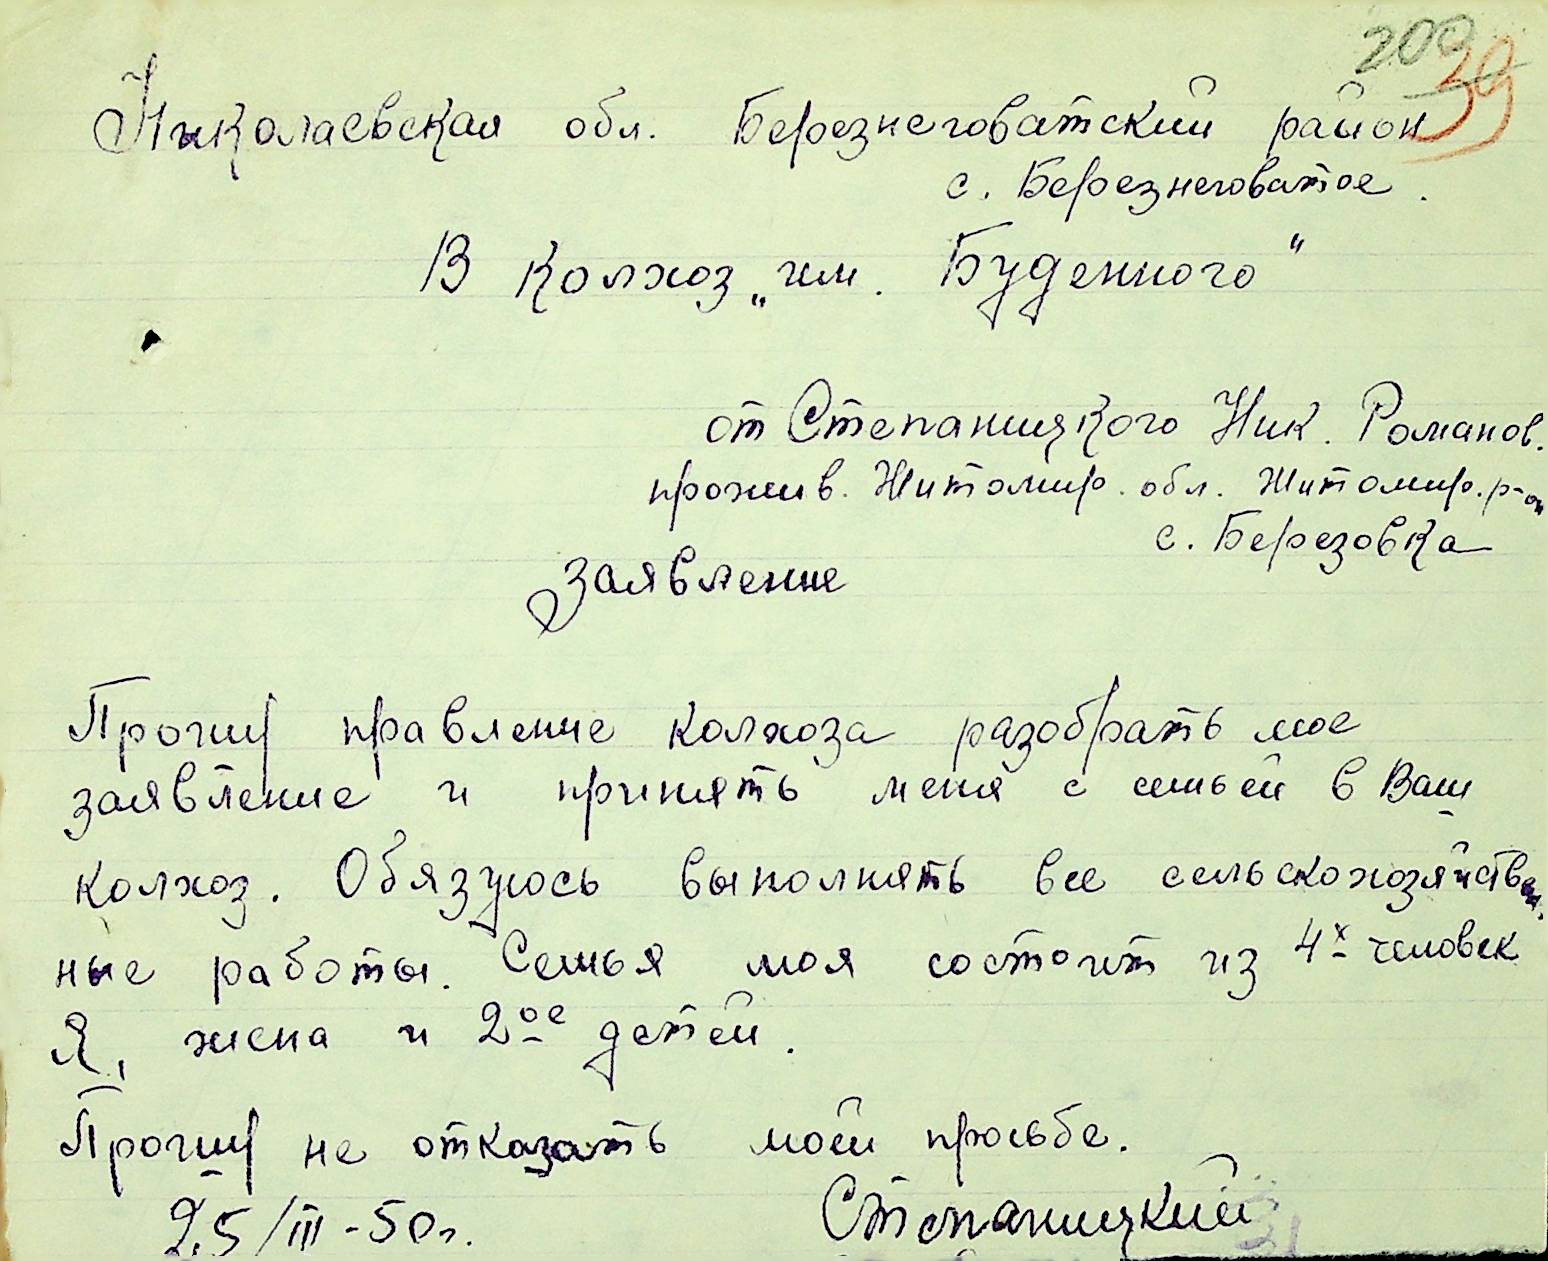 200
39
Николаевская обл. Березнеговатский район
с. Березнеговатое.
В Колхоз „им. Буденного"
от Степаницкого Ник. Романов.
прожив. Житомир. обл. Житомир. р-он
с. Березовка
Заявление
Прошу правление колхоза разобрать мое
заявление и принять меня с семьей в Ваш
колхоз. Обязуюсь выполнять все сельскохозяйствен.
ные работы. Семья моя состоит из 4х человек
Я, жена и 2ое детей.
Прошу не отказать моей просьбе.
25/III-50г. Степаницкий